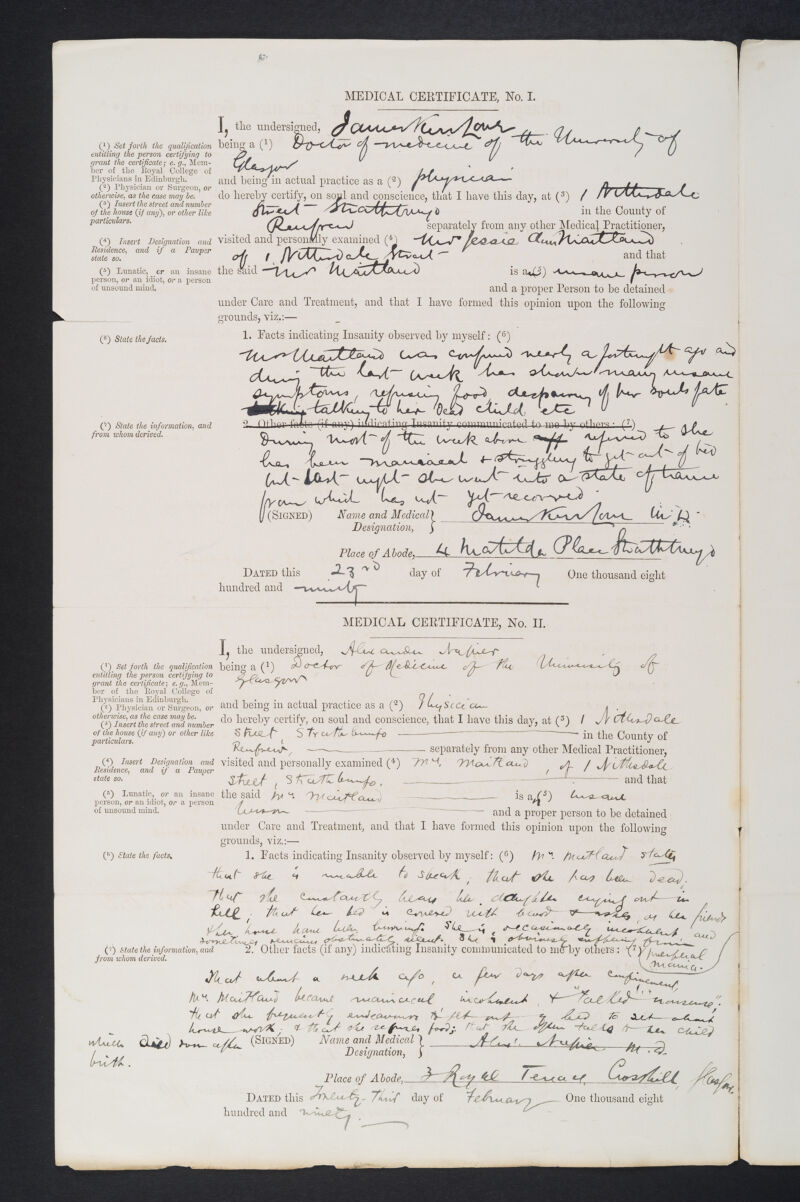 MEDICAL CERTIFICATE, No. I.
I, the undersigned, James Kerr Love
being a (1) Doctor of medicine of the University of
Glasgow
and being in actual practice as a (2) physician
do hereby certify, on soul and conscience, that I have this day, at (3) 1 Nithsdale
Street Strathbungo in the County of
Renfrew separately from any other Medical Practitioner,
visited and personally examined (4) Mrs Jessie Ann Maitland
of 1 Nithsdale Street and that
the said Mrs Maitland is a(5) insane person
and a proper Person to be detained
under Care and Treatment, and that I have formed this opinion upon the following
grounds, viz.:—
(1) Set forth the qualification
entitling the person certifying to
grant the certificate; e.g., Mem-
ber of the Royal College of
Physicians in Edinburgh.
(2) Physician or Surgeon, or
otherwise, as the case may be.
(3) Insert the street and number
of the house (if any), or other like
particulars.
(4) Insert Designation and
Residence, and if a Pauper
state so.
(5) Lunatic, or an insane
person, or an idiot, or a person
of unsound mind.
(6) State the facts.
1. Facts indicating Insanity observed by myself: (6)
Mrs Maitland was confined nearly a fortnight ago and
during the last week has shown many insane
symptoms, refusing food, despairing of her souls fate
talking to her dead child etc
(7) State the information, and
from whom derived.
2. Other facts (if any) indicating Insanity communicated to me by others: (7)
During most of the week above referred to she
has been maniacal & struggling to get out of bed
but last night she went into a state of trance
from which has not yet recovered
(SIGNED) Name and Medical Designation, James Kerr Love M.D.
Place of Abode, 4 Matilda Place Strathbungo
DATED this 23rd day of February One thousand eight
hundred and ninety
MEDICAL CERTIFICATE, No. II.
I, the undersigned, Alexander Napier
being a (1) Doctor of Medicine of the University of
Glasgow
and being in actual practice as a (2) Physician
do hereby certify, on soul and conscience, that I have this day, at (3) 1 Nithsdale
Street, Strathbungo in the County of
Renfrew, separately from any other Medical Practitioner,
visited and personally examined (4) Mrs Maitland, of 1 Nithsdale
Street, Strathbungo. and that
the said Mrs Maitland is a (5) insane
person and a proper person to be detained
under Care and Treatment, and that I have formed this opinion upon the following
grounds, viz.:—
(1) Set forth the qualification
entitling the person certifying to
grant the certificate; e.g., Mem-
ber of the Royal College of
Physicians in Edinburgh.
(2) Physician or Surgeon, or
otherwise, as the case may be.
(3) Insert the street and number
of the house (if any) or other like
particulars.
(4) Insert Designation and
Residence, and if a Pauper
state so.
(5) Lunatic, or an insane
person, or an idiot, or a person
of unsound mind.
(6) State the facts.
1. Facts indicating Insanity observed by myself: (6) Mrs Maitland states
that she is unable to speak; that she has been dead;
That she constantly hears her daughter crying out in
hell; that her bed is covered with blood & ashes, as her friends
& her house have been burning. She is occasionally incoherent and
sometimes remains obstinately silent. She is obviously suffering from
puerperal
mania.
(7) State the information, and
from whom derived.
2. Other facts (if any) indicating Insanity communicated to me by others: (7)
That about a week ago, a few days after confinement,
Mrs Maitland became maniacal incoherent, & "talked nonsense";
that she frequently endeavours to get out of bed to set about
house work; & that she refuses food; that she often talks to her child
which died soon after
birth.
(SIGNED) Name and Medical Designation, Alex. Napier M.D.
Place of Abode, 3 Royal Terrace, Crosshill, Glasgow.
DATED this Twenty-third day of February One thousand eight
hundred and ninety.